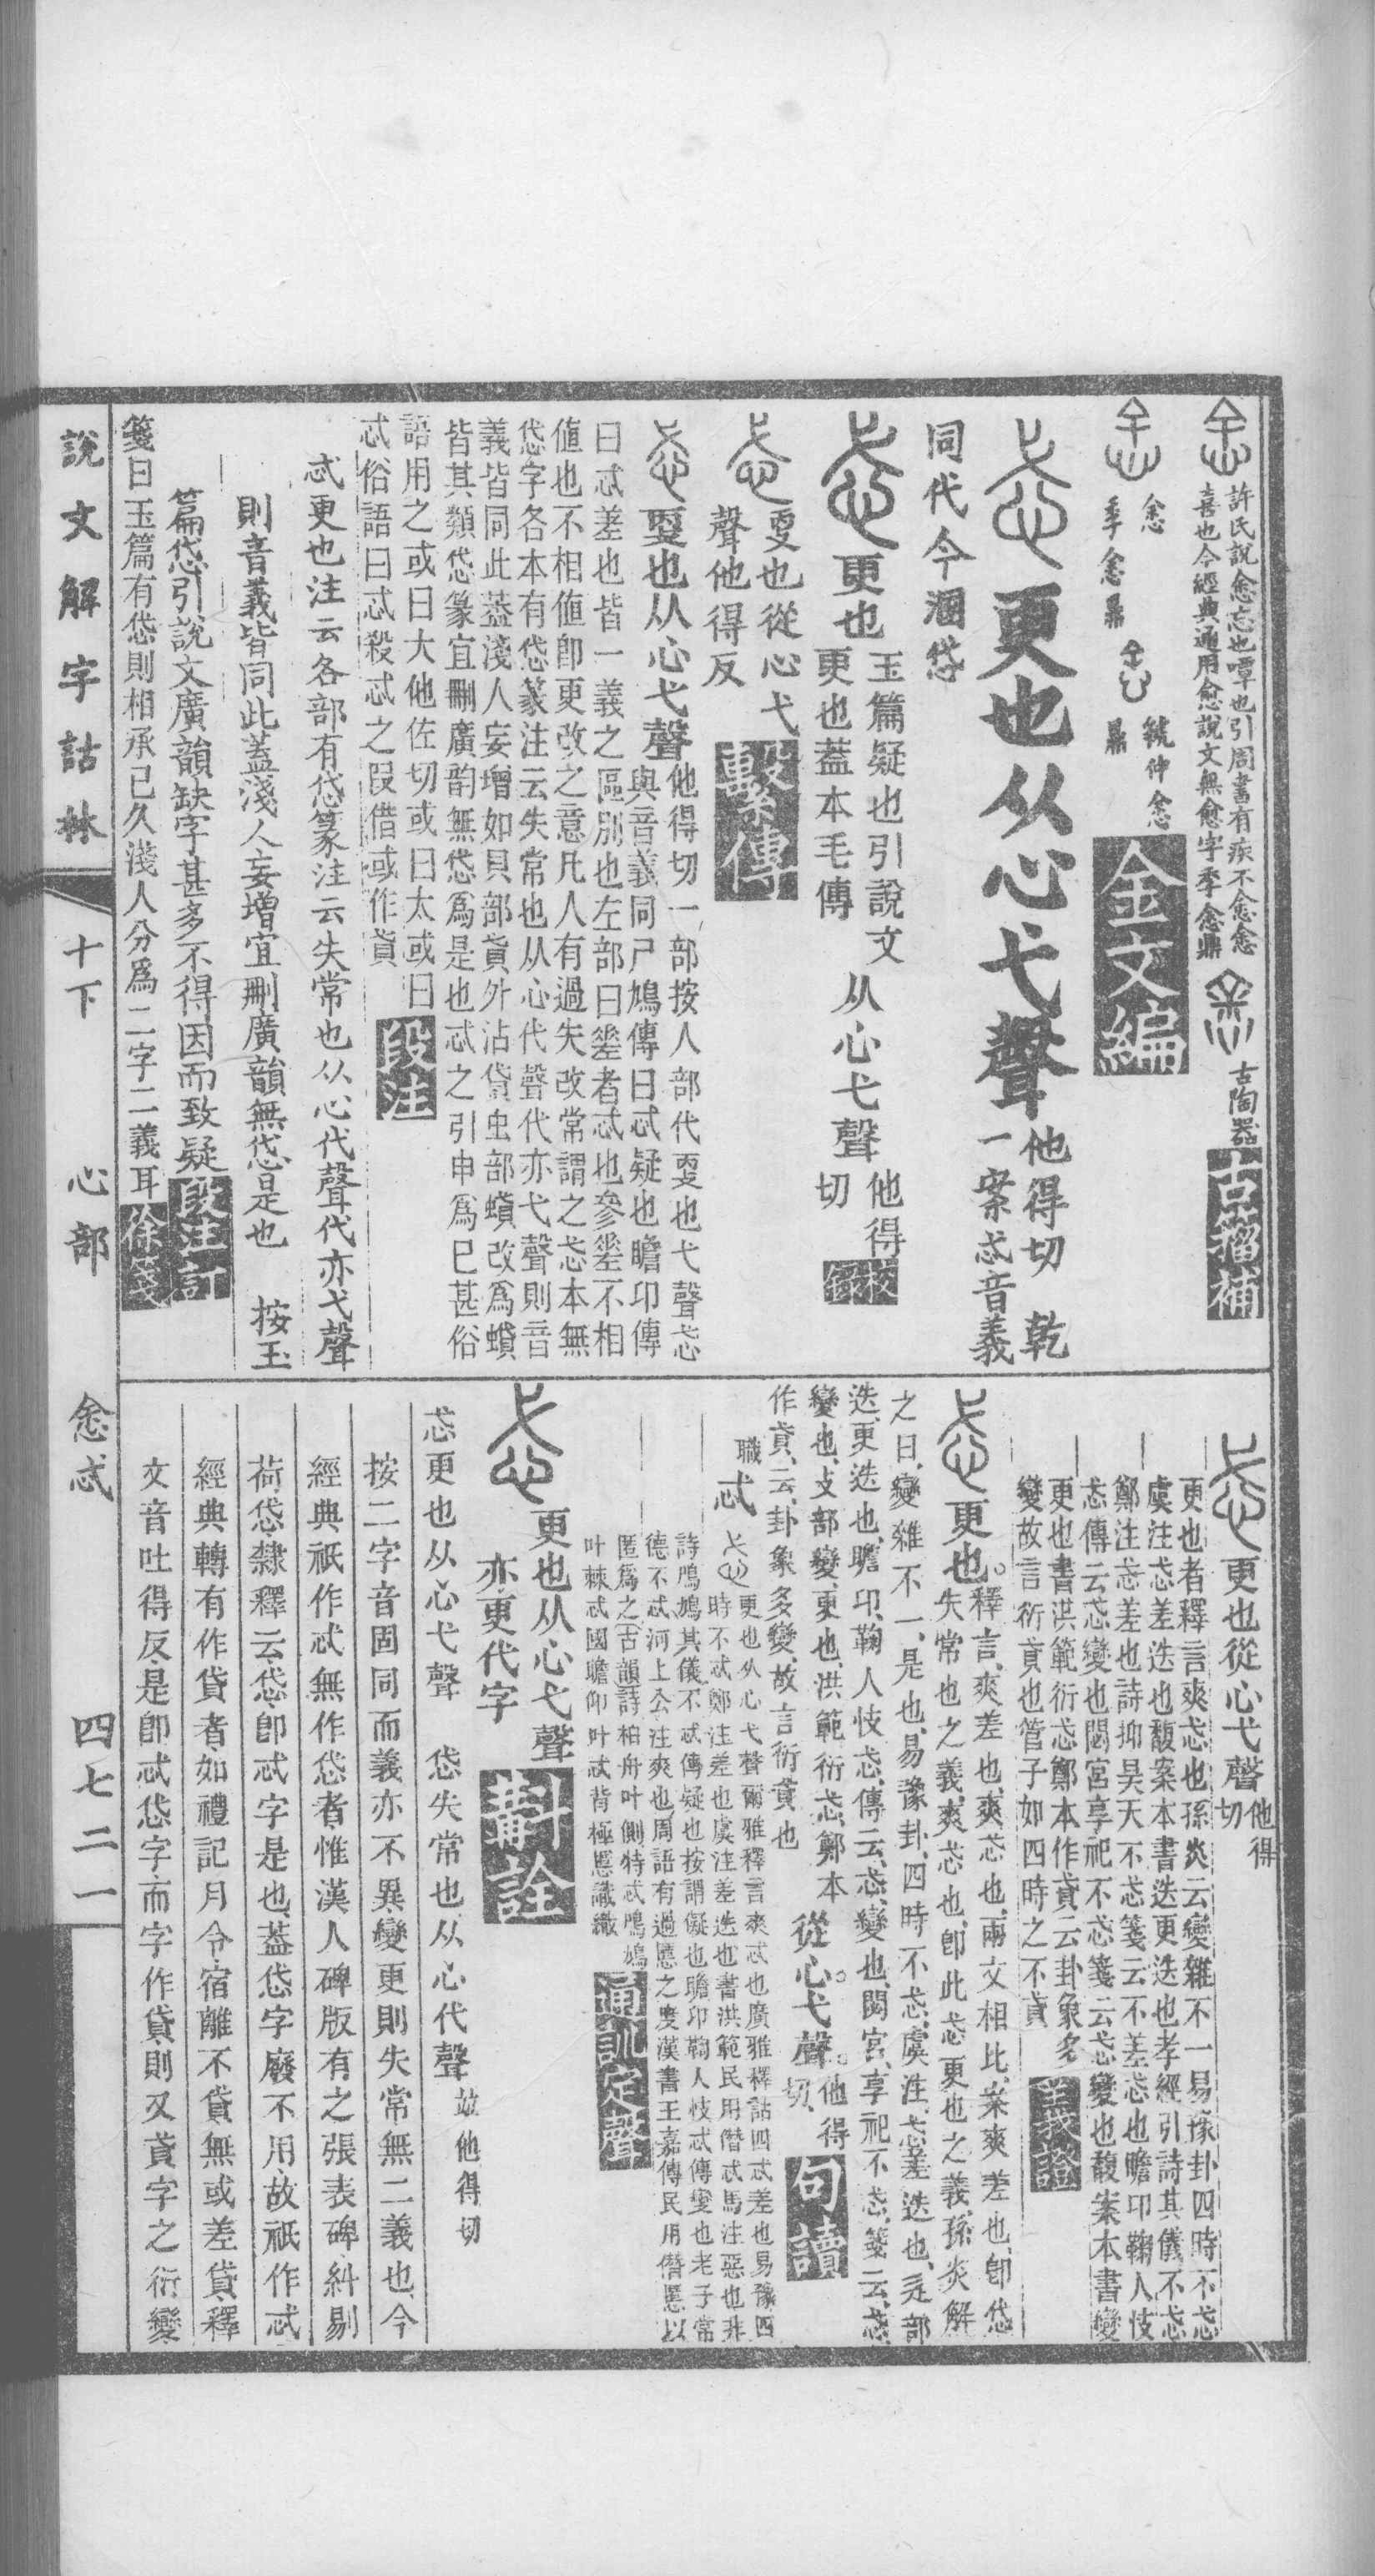 許氏說悆忘也嘾也引周書有疾不悆悆
喜也今經典通用愈說文無愈字季悆鼎
古陶器
古籀補
悆
季悆鼎
虢仲悆
鼎
金文編
更也从心弋聲
他得切 乾
一案忒音義
同代今溷忒
更也
玉篇疑也引說文
更也蓋本毛傳
从心弋聲
他得
切
校錄
㪅也從心弋
聲他得反
繫傳
㪅也从心弋聲
他得切一部按人部代㪅也弋聲忒
與音義同尸鳩傳曰忒疑也瞻卬傳
曰忒差也皆一義之區別也左部曰差者忒也參差不相
値也不相値卽更改之意凡人有過失改常謂之忒本無
㤥字各本有㤥篆注云失常也从心代聲代亦弋聲則音
義皆同此葢淺人妄增如貝部貣外沾貸虫部蟘改爲蟘
皆其類㤥篆宜刪廣韵無㤥爲是也忒之引申爲巳甚俗
語用之或曰大他佐切或曰太或曰
忒俗語曰忒殺忒之叚借或作貣
段注
忒更也注云各部有㤥篆注云失常也从心代聲代亦弋聲
則音義皆同此蓋淺人妄增宜刪廣韻無㤥是也 按玉
篇㤥引說文廣韻缺字甚多不得因而致疑
段注訂
箋曰玉篇有㤥則相承已久淺人分爲二字二義耳
徐箋
更也從心弋聲
他得
切
更也者釋言爽忒也孫炎云變雜不一易豫卦四時不忒
虞注忒差迭也馥案本書迭更迭也孝經引詩其儀不忒
鄭注忒差也詩抑昊天不忒箋云不差忒也瞻卬鞫人忮
忒傳云忒變也閟宮享祀不忒箋云忒變也馥案本書變
更也書洪範衍忒鄭本作貣云卦象多
變故言衍貣也管子如四時之不貣
義證
更也。
釋言、爽差也、爽忒也、兩文相比、案爽差也、卽㤥
失常也之義、爽忒也、卽此忒更也之義、孫炎解
之曰、變雜不一、是也、易豫卦、四時不忒、虞注、忒差迭也、辵部
迭、更迭也、瞻卬、鞫人忮忒、傳云、忒、變也、閟宮、享祀不忒、箋云、忒
變也、攴部變、更也、洪範、衍忒、鄭本
作貣、云、卦象多變、故言衍貣也
從心。弋聲。
他得
切、
句讀
職
忒
更也从心弋聲爾雅釋言爽忒也廣雅釋詁四忒差也易豫四
時不忒鄭注差也虞注差迭也書洪範民用僭忒馬注惡也非
詩鳲鳩其儀不忒傳疑也按謂儗也瞻卬鞫人忮忒傳變也老子常
德不忒河上公注爽也周語有過慝之度漢書王嘉傳民用僭慝以
匿爲之古韻詩柏舟叶側特忒鳲鳩
叶棘忒國瞻仰叶忒背極慝識織
通訓定聲
更也从心弋聲
亦更代字
斠詮
忒更也从心弋聲 㤥失常也从心代聲
故他得切
按二字音固同而義亦不異變更則失常無二義也今
經典祇作忒無作㤥者惟漢人碑版有之張表碑糾剔
荷㤥隸釋云㤥卽忒字是也蓋㤥字廢不用故祇作忒
經典轉有作貸者如禮記月令宿離不貸無或差貸釋
文音吐得反是卽忒㤥字而字作貸則又貣字之衍變
說文解字詁林
十下
心部
悆忒
四七二一